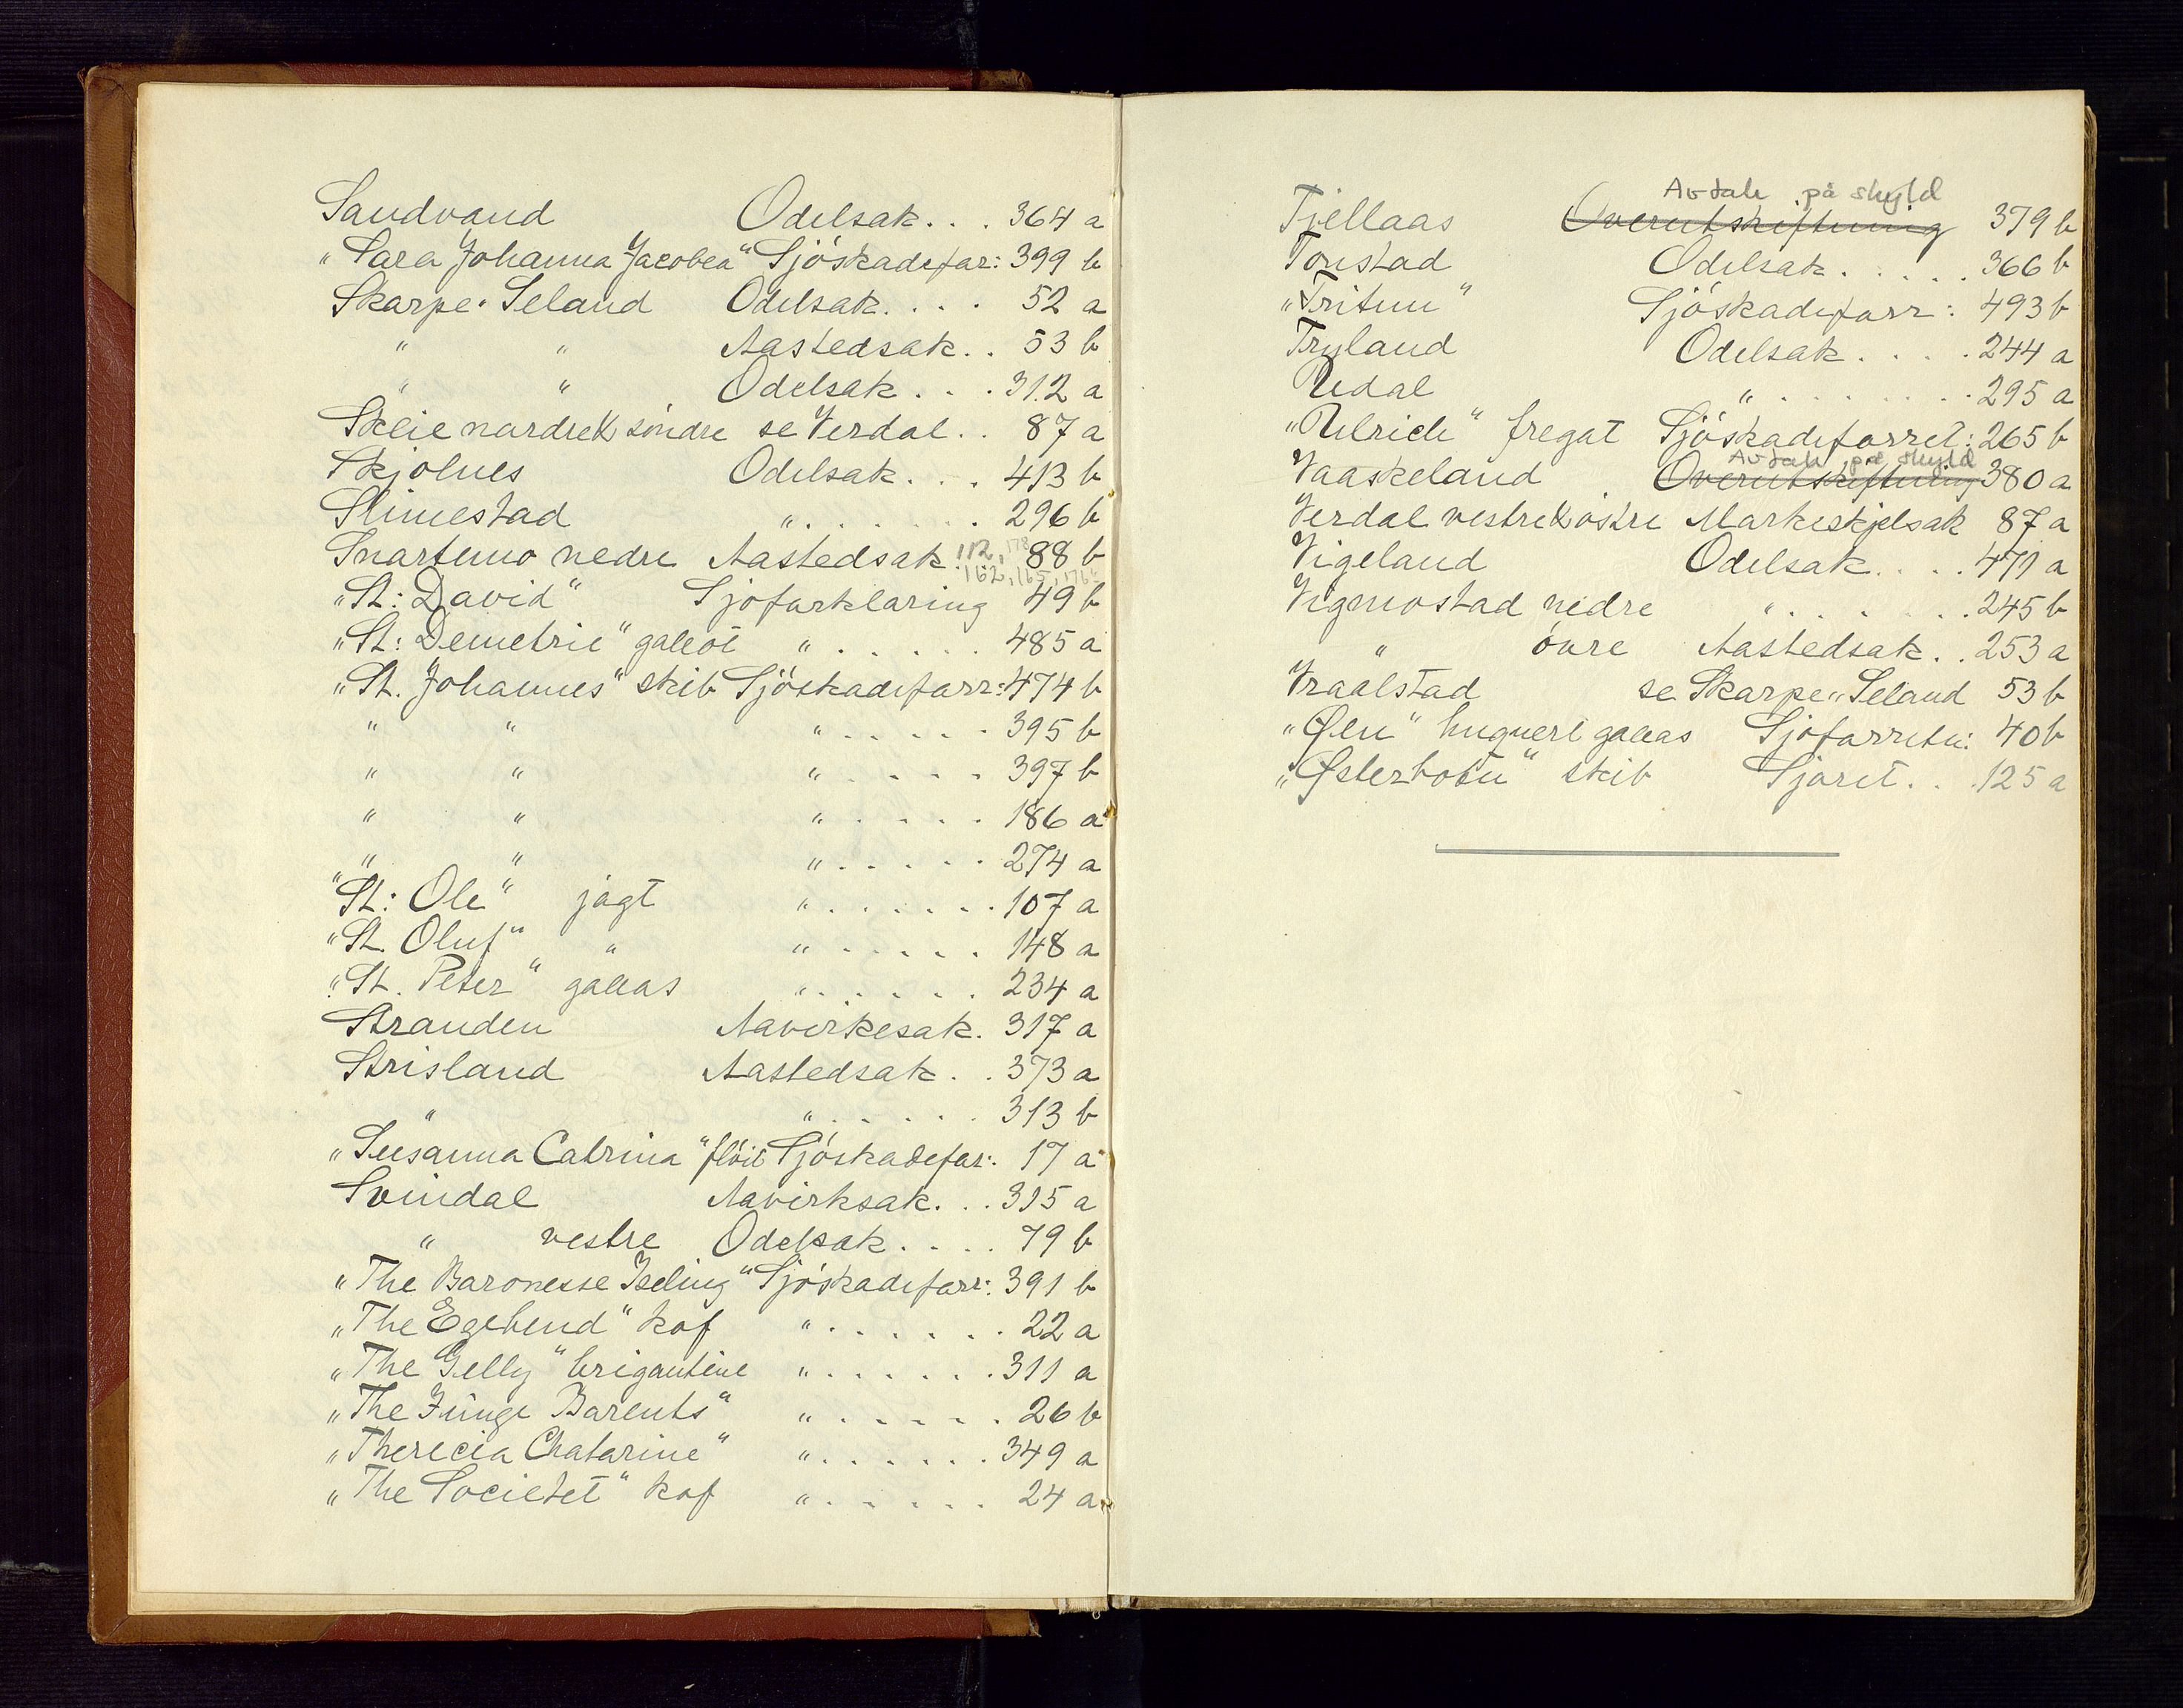 Sandvand Odelsak... 364 a
„Sara Johanna Jacobea“ Sjöskadefar: 399 b
Skarpe. Seland Odelsak.... 52 a
" " Aastedsak.. 53 b
" " Odelsak... 312 a
Skeie nordre & söndre se Verdal.. 87 a
Skjolnes Odelsak... 413 b
Slimestad "....... 296 b
Snartemo nedre Aastedsak 112, 178 88 b
162, 165, 176
„St: David“ Sjöfarklaring 49 b
„St: Demetrie“ galeot "..... 485 a
„St. Johannes“ skib Sjöskadefarr: 474 b
" " "..... 395 b
" " ".... 397 b
" " "..... 186 a
" " "..... 274 a
„St: Ole“ jagt "....... 107 a
„St. Oluf“ " "..... 148 a
„St. Peter“ galeas "..... 234 a
Stranden Aavirkesak. 317 a
Strisland Aastedsak.. 373 a
" "..... 313 b
„Susanna Catrina“ flöit Sjöskadefar: 17 a
Svindal Aavirksak... 315 a
" vestre Odelsak.... 79 b
„The Baronesse Iseling“ Sjöskadefarr: 391 b
„The Egebend“ kof "...... 22 a
„The Gelly“ brigantine "....... 311 a
„The Junge Barents“ "..... 26 b
„Therecia Chatarine“ "...... 349 a
„The Societet“ kof "..... 24 a
Avtale på skyld
Tjellaas Overutskiftning 379 b
Tonstad Odelsak..... 366 b
„Tritun“ Sjöskadefarr: 493 b
Tryland Odelsak.... 244 a
Udal "....... 295 a
„Ulrich“ fregat Sjöskadeforret: 265 b
Avtale på skyld
Vaaskeland Overutskiftning 380 a
Verdal vestre & östre Markeskjelsak 87 a
Vigeland Odelsak.... 471 a
Vigmostad nedre "...... 245 b
" övre Aastedsak.. 253 a
Vraalstad se Skarpe„ Seland 53 b
„Øen“ huguert galeas Sjöfarretn: 40 b
„Østerbotn“ skib Sjöret... 125 a